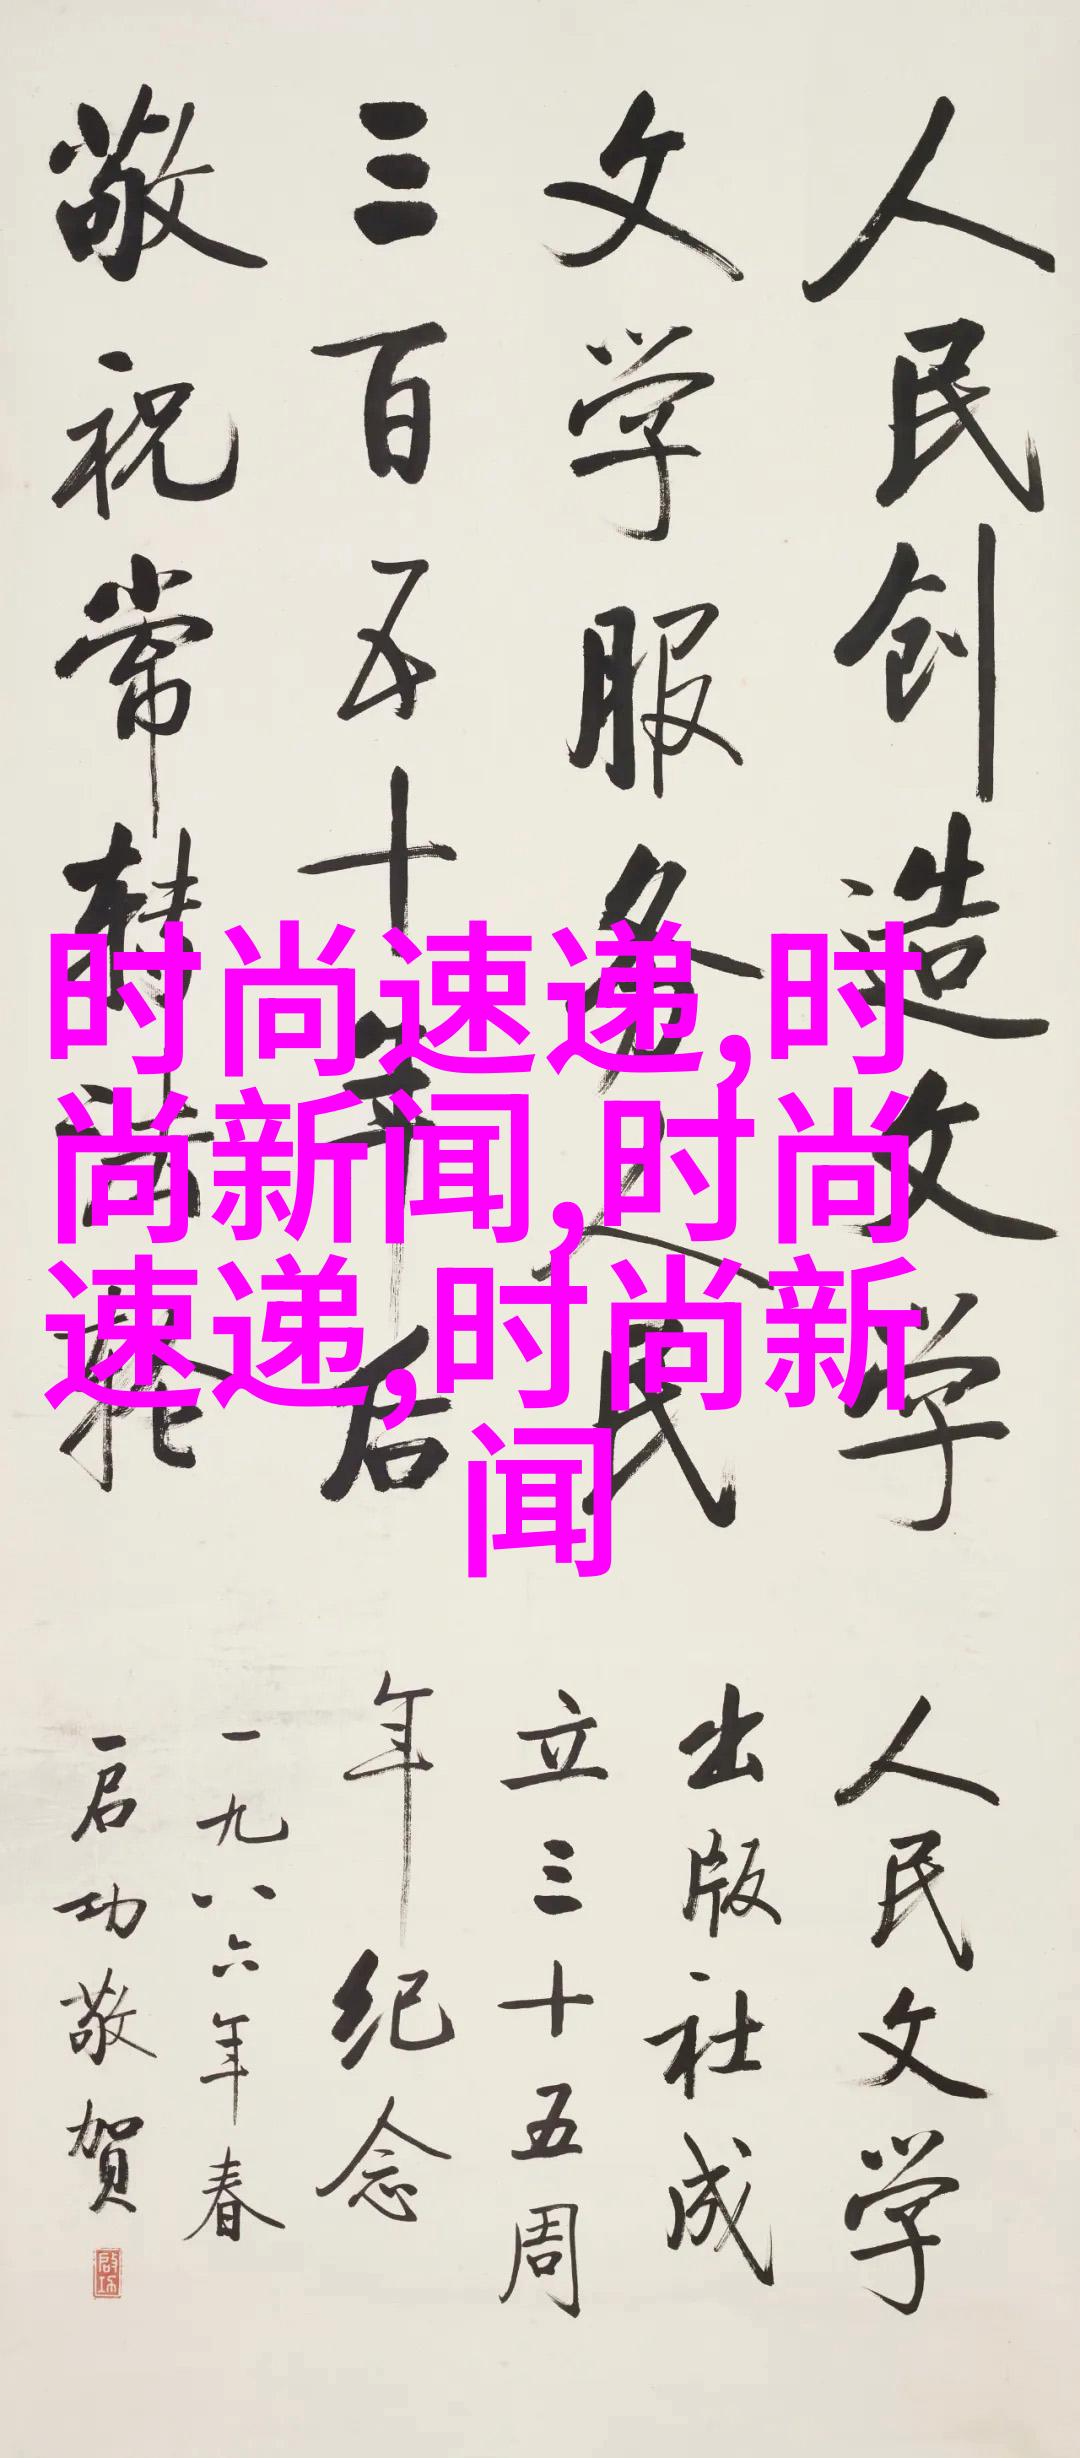 人民创造文学
文学服务人民
三百五十年后
敬祝常
人民文学
出版社成
立三十五周
年纪念
一九八六年春
启功敬贺
时尚速递,时
尚新闻,时尚
速递,时尚新
闻